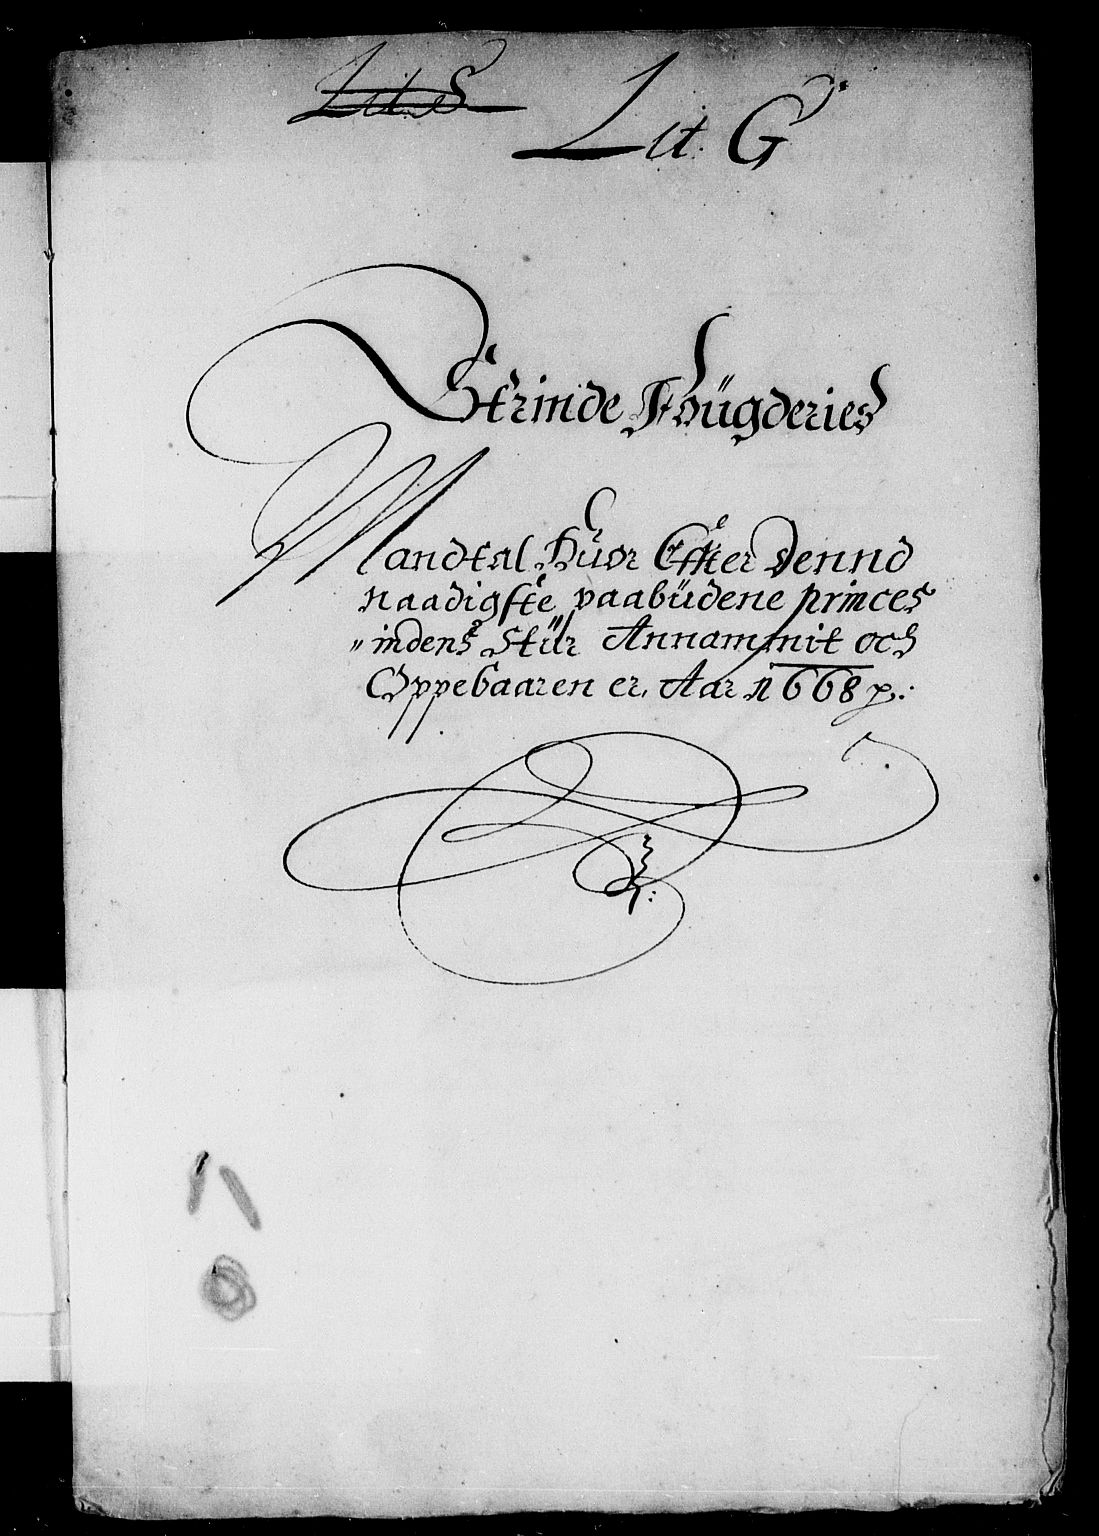 Lit. G
Strinde Fougderies
Mandtal Huor Effter dennd
naadigste paabüdene princes
indens Stür Annammit och
Oppebaaren er, Aar 1668 p.: